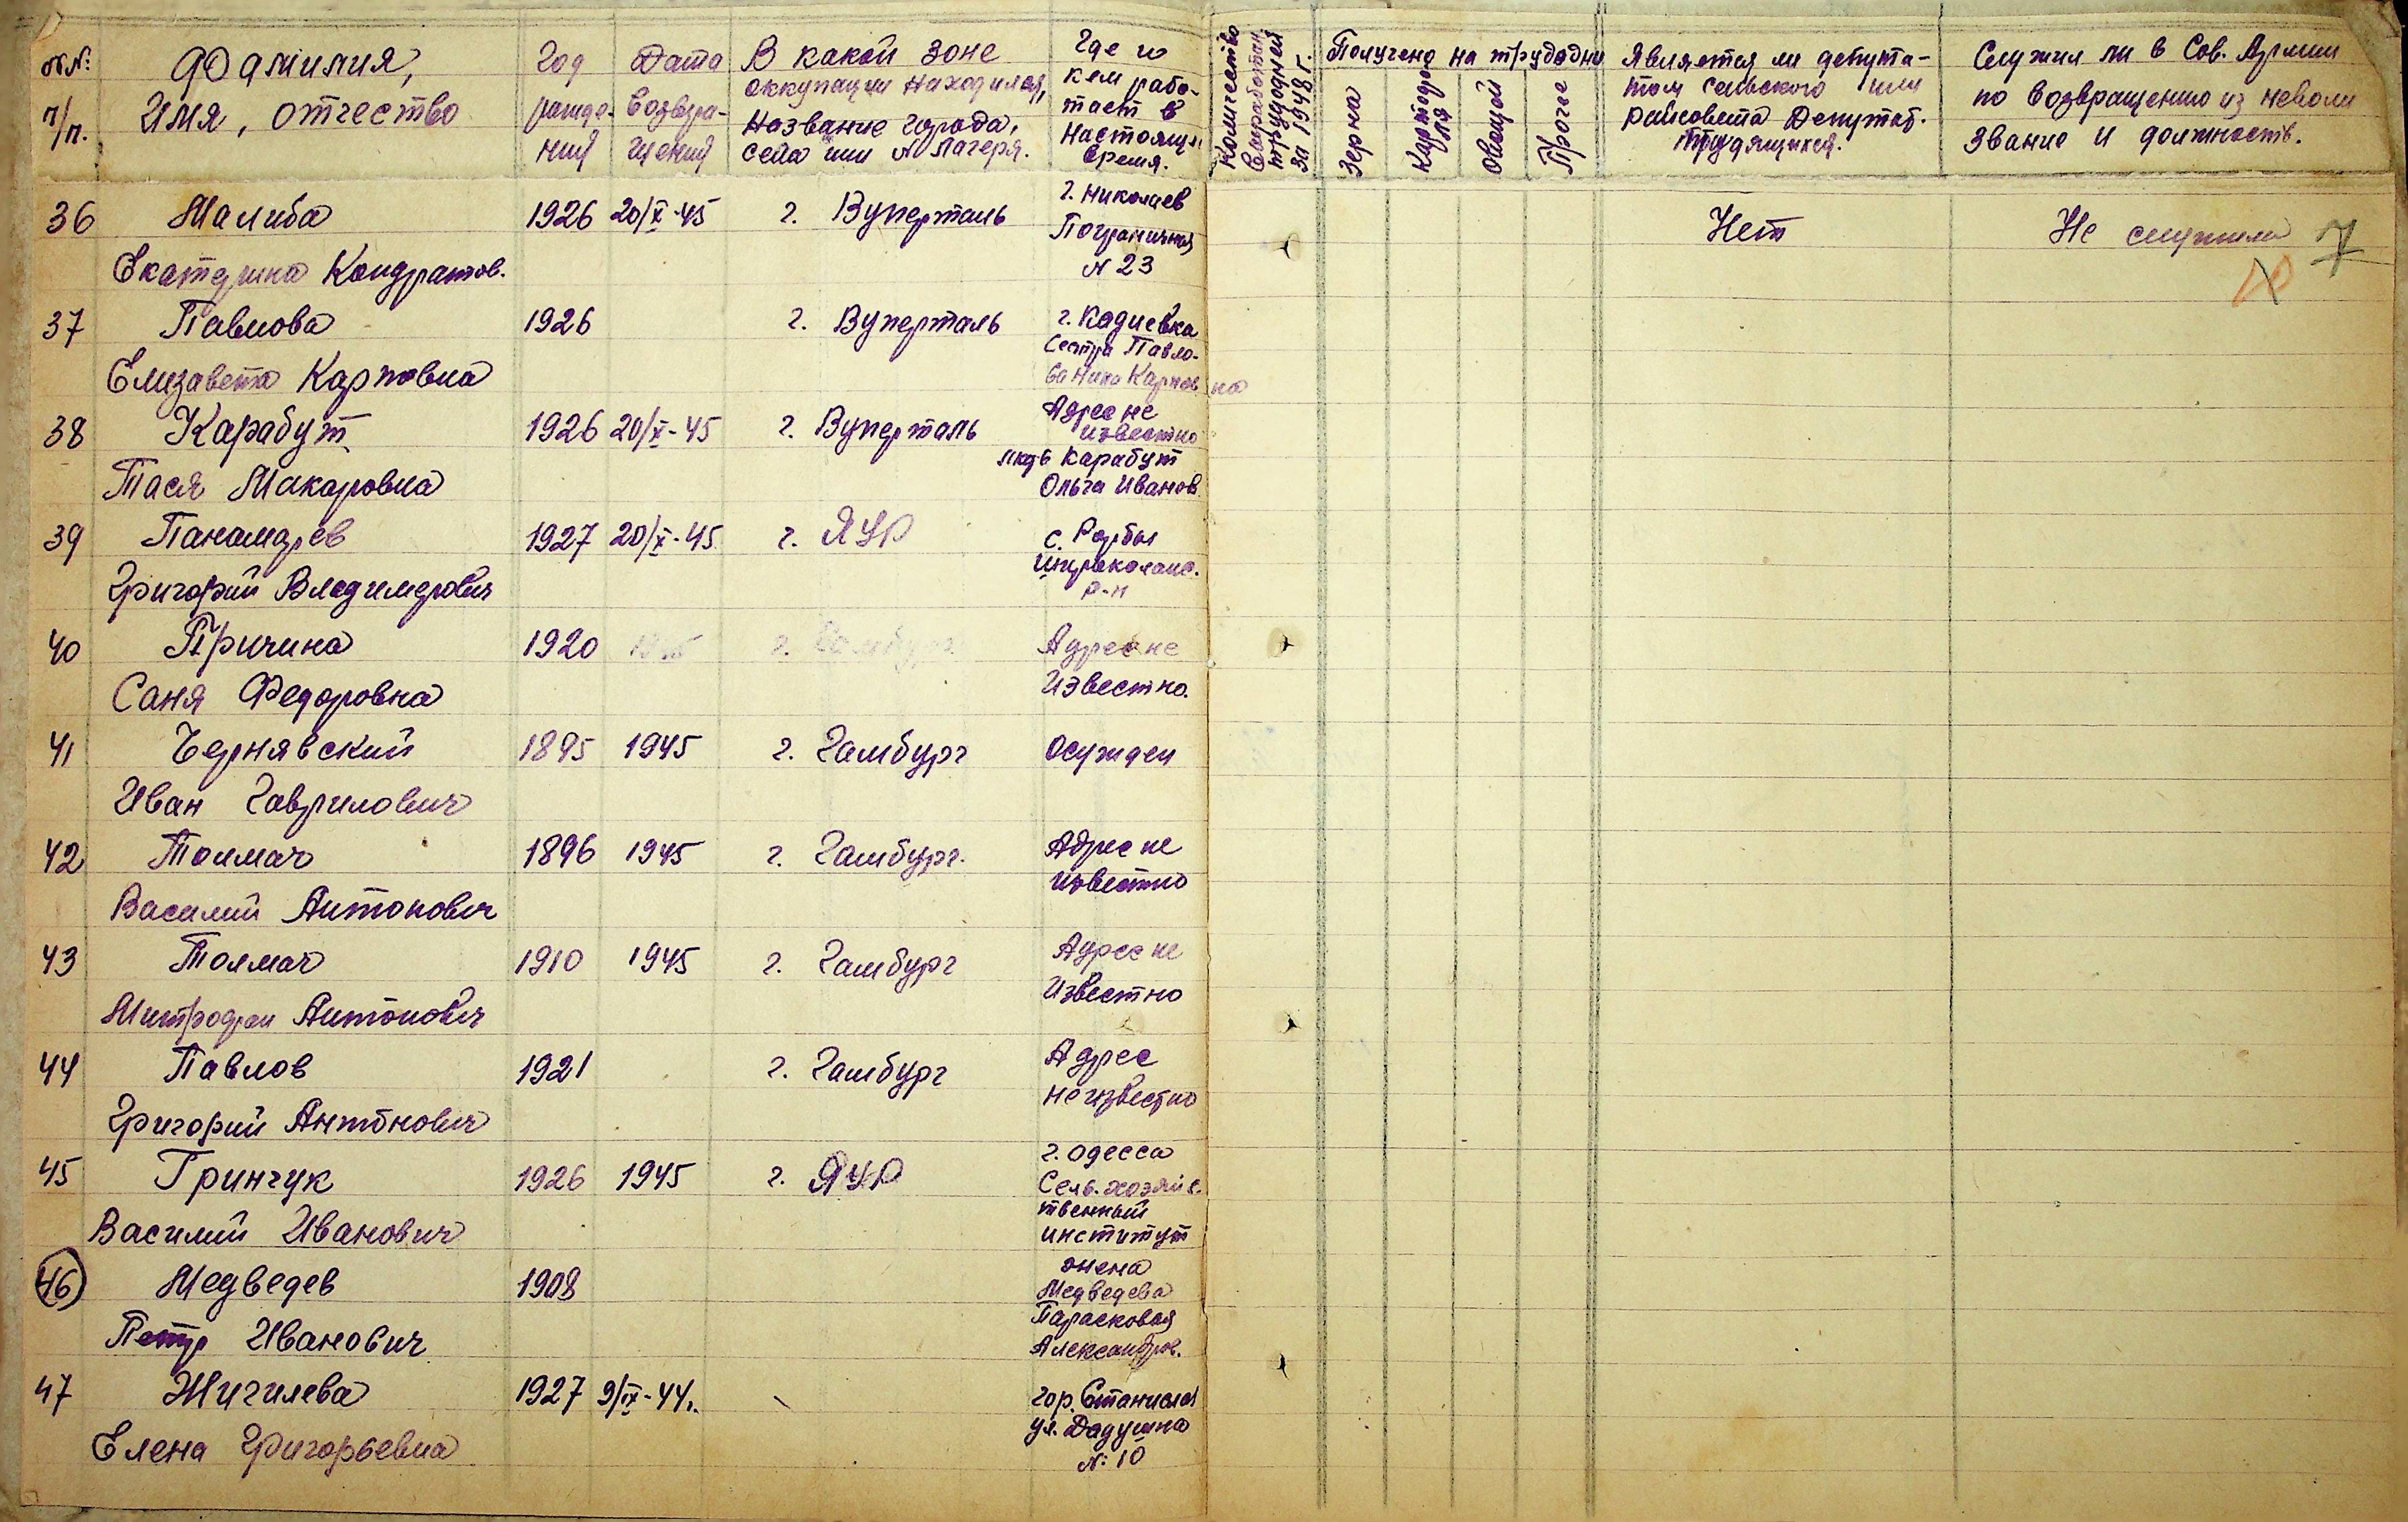 №№: п/п.
Фамилия,
Имя, отчество
Год рожде-ния
Дата возвра-щения
В какой зоне
оккупации находился,
Название города,
села или № лагеря.
Где и
кем рабо-
тает в
настоящ.
время.
Количество
выработан.
трудодней
за 1948 г.
Получено на трудодни
Зерна
Картофеля
Овощей
Прочее
Является ли депута-
том сельского или
райсовета Депутат.
Трудящихся.
Служил ли в Сов. Армии
по возвращению из неволи
Звание и должность.
36 Малиба 1926 20/X-45 г. Вуперталь г. Николаев Нет Не служила 7
Пограничная
Екатерина Кондратов. № 23
37 Павлова 1926 г. Вуперталь г. Кадиевка
Сестра Павло-
Елизавета Карповна ва Нина Карповна
38 Карабут 1926 20/X-45 г. Вуперталь Адрес не
известно
мать Карабут
Тася Макаровна Ольга Иванов.
39 Панамарев 1927 20/X-45 г. ЯУР с.
Григорий Владимерович р-н
40 Причина 1920 г. Адрес не
Саня Федоровна Известно.
41 Чернявский 1895 1945 г. Гамбург Осужден
Иван Гаврилович
42 Толмач 1896 1945 г. Гамбург. Адрес не
Василий Антонович известно
43 Толмач 1910 1945 г. Гамбург Адрес не
Митрофан Антонович Известно
44 Павлов 1921 г. Гамбург Адрес
Григорий Антонович неизвестно
45 Гринчук 1926 1945 г. ЯУР г. Одесса
Сель.хозяйс.
твенный
Василий Иванович институт
46 Медведев 1908 жена
Медведева
Парасковья
Петр Иванович Александров.
47 Жигилева 1927 9/IX-44г. гор. Станислав
ул. Дадугина
Елена Григорьевна №: 10